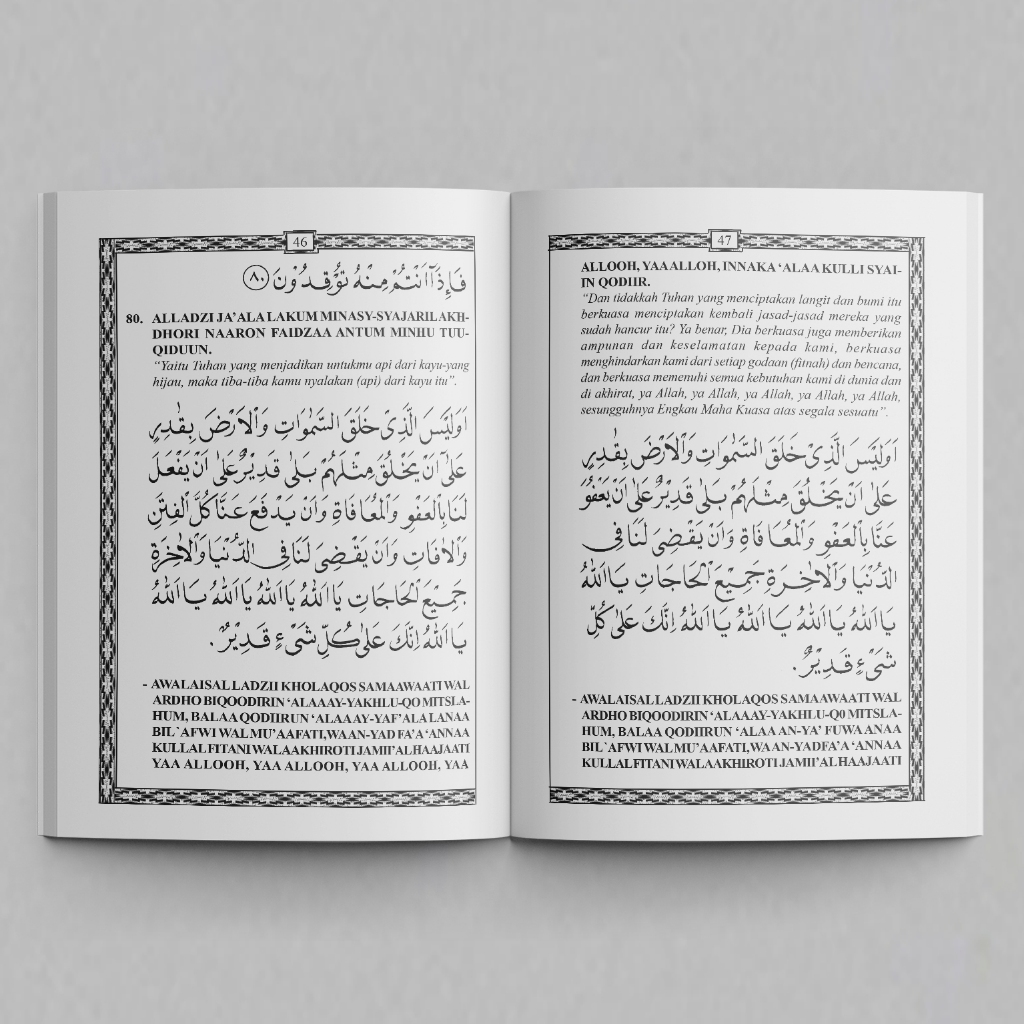 46
فَاِذَآ اَنْتُمْ مِنْهُ تُوْقِدُوْنَ ﴿٨٠﴾
80. ALLADZI JA’ALA LAKUM MINASY-SYAJARIL AKH-
DHORI NAARON FAIDZAA ANTUM MINHU TUU-
QIDUUN.
“Yaitu Tuhan yang menjadikan untukmu api dari kayu-yang
hijau, maka tiba-tiba kamu nyalakan (api) dari kayu itu”.
اَوَلَيْسَ الَّذِيْ خَلَقَ السَّمٰوَاتِ وَالْاَرْضَ بِقٰدِرٍ
عَلٰٓى اَنْ يَخْلُقَ مِثْلَهُمْ بَلٰى قَدِيْرٌ عَلٰى اَنْ يَفْعَلَ
لَنَا بِالْعَفْوِ وَالْمُعَافَاةِ وَاَنْ يَدْفَعَ عَنَّا كُلَّ الْفِتَنِ
وَالْاٰفَاتِ وَاَنْ يَقْضِىَ لَنَا فِى الدُّنْيَا وَالْاٰخِرَةِ
جَمِيْعَ الْحَاجَاتِ يَا اَللهُ يَا اَللهُ يَا اَللهُ يَا اَللهُ
يَا اَللهُ اِنَّكَ عَلٰى كُلِّ شَىْءٍ قَدِيْرٌ .
- AWALAISALLADZII KHOLAQOS SAMAAWAATI WAL
ARDHO BIQOODIRIN ‘ALAAAY-YAKHLU-QO MITSLA-
HUM, BALAA QODIIRUN ‘ALAAAY-YAF’ALA LANAA
BIL`AFWI WAL MU’AAFATI, WAAN-YAD FA’A ‘ANNAA
KULLAL FITANI WALAAKHIROTI JAMII’AL HAAJAATI
YAA ALLOOH, YAA ALLOOH, YAA ALLOOH, YAA
47
ALLOOH, YAA ALLOH, INNAKA ‘ALAA KULLI SYAI-
IN QODIIR.
“Dan tidakkah Tuhan yang menciptakan langit dan bumi itu
berkuasa menciptakan kembali jasad-jasad mereka yang
sudah hancur itu? Ya benar, Dia berkuasa juga memberikan
ampunan dan keselamatan kepada kami, berkuasa
menghindarkan kami dari setiap godaan (fitnah) dan bencana,
dan berkuasa memenuhi semua kebutuhan kami di dunia dan
di akhirat, ya Allah, ya Allah, ya Allah, ya Allah, ya Allah,
sesungguhnya Engkau Maha Kuasa atas segala sesuatu”.
اَوَلَيْسَ الَّذِيْ خَلَقَ السَّمٰوَاتِ وَالْاَرْضَ بِقٰدِرٍ
عَلٰى اَنْ يَخْلُقَ مِثْلَهُمْ بَلٰى قَدِيْرٌ عَلٰى اَنْ يَعْفُوَ
عَنَّا بِالْعَفْوِ وَالْمُعَافَاةِ وَاَنْ يَقْضِىَ لَنَا فِى
الدُّنْيَا وَالْاٰخِرَةِ جَمِيْعَ الْحَاجَاتِ يَا اَللهُ
يَا اَللهُ يَا اَللهُ يَا اَللهُ يَا اَللهُ اِنَّكَ عَلٰى كُلِّ
شَىْءٍ قَدِيْرٌ .
- AWALAISALLADZII KHOLAQOS SAMAAWAATI WAL
ARDHO BIQOODIRIN ‘ALAAAY-YAKHLU-QO MITSLA-
HUM, BALAA QODIIRUN ‘ALAA AN-YA’ FUWA ANAA
BIL`AFWI WAL MU’AAFATI, WAAN-YADFA’A ‘ANNAA
KULLAL FITANI WALAAKHIROTI JAMII’AL HAAJAATI